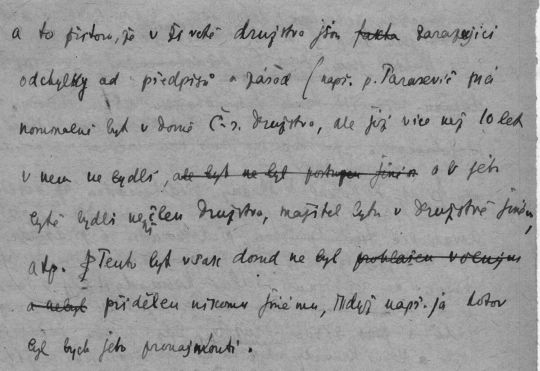 a to přitom, že v životě družstva jsou fakta zarážející
odchylky od předpisů a zásad (např. p. Parasevič má
nominalně byt v domě Č-s. družstva, ale již více než 10 let
v nem ne bydlí, ale byt ne byl postupen jiném a v jeh
bytě bydlí nečlen družstva, majitel bytu v družstvě jiném,
atp. Tento byt však dosud ne byl prohlašen volnym
a nebyl přidělen nikomu jinému, když např. ja hotov
byl bych jeho pronajmouti.